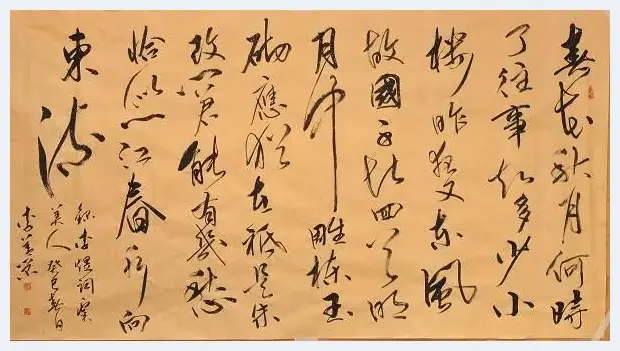 春花秋月何時
了往事知多少小
樓昨夜又東風
故國不堪回首明
月中雕欄玉
砌應猶在祇是朱
改問君能有幾愁
恰似一江春水向
東流
錄李煜詞虞
美人 癸巳春日
李